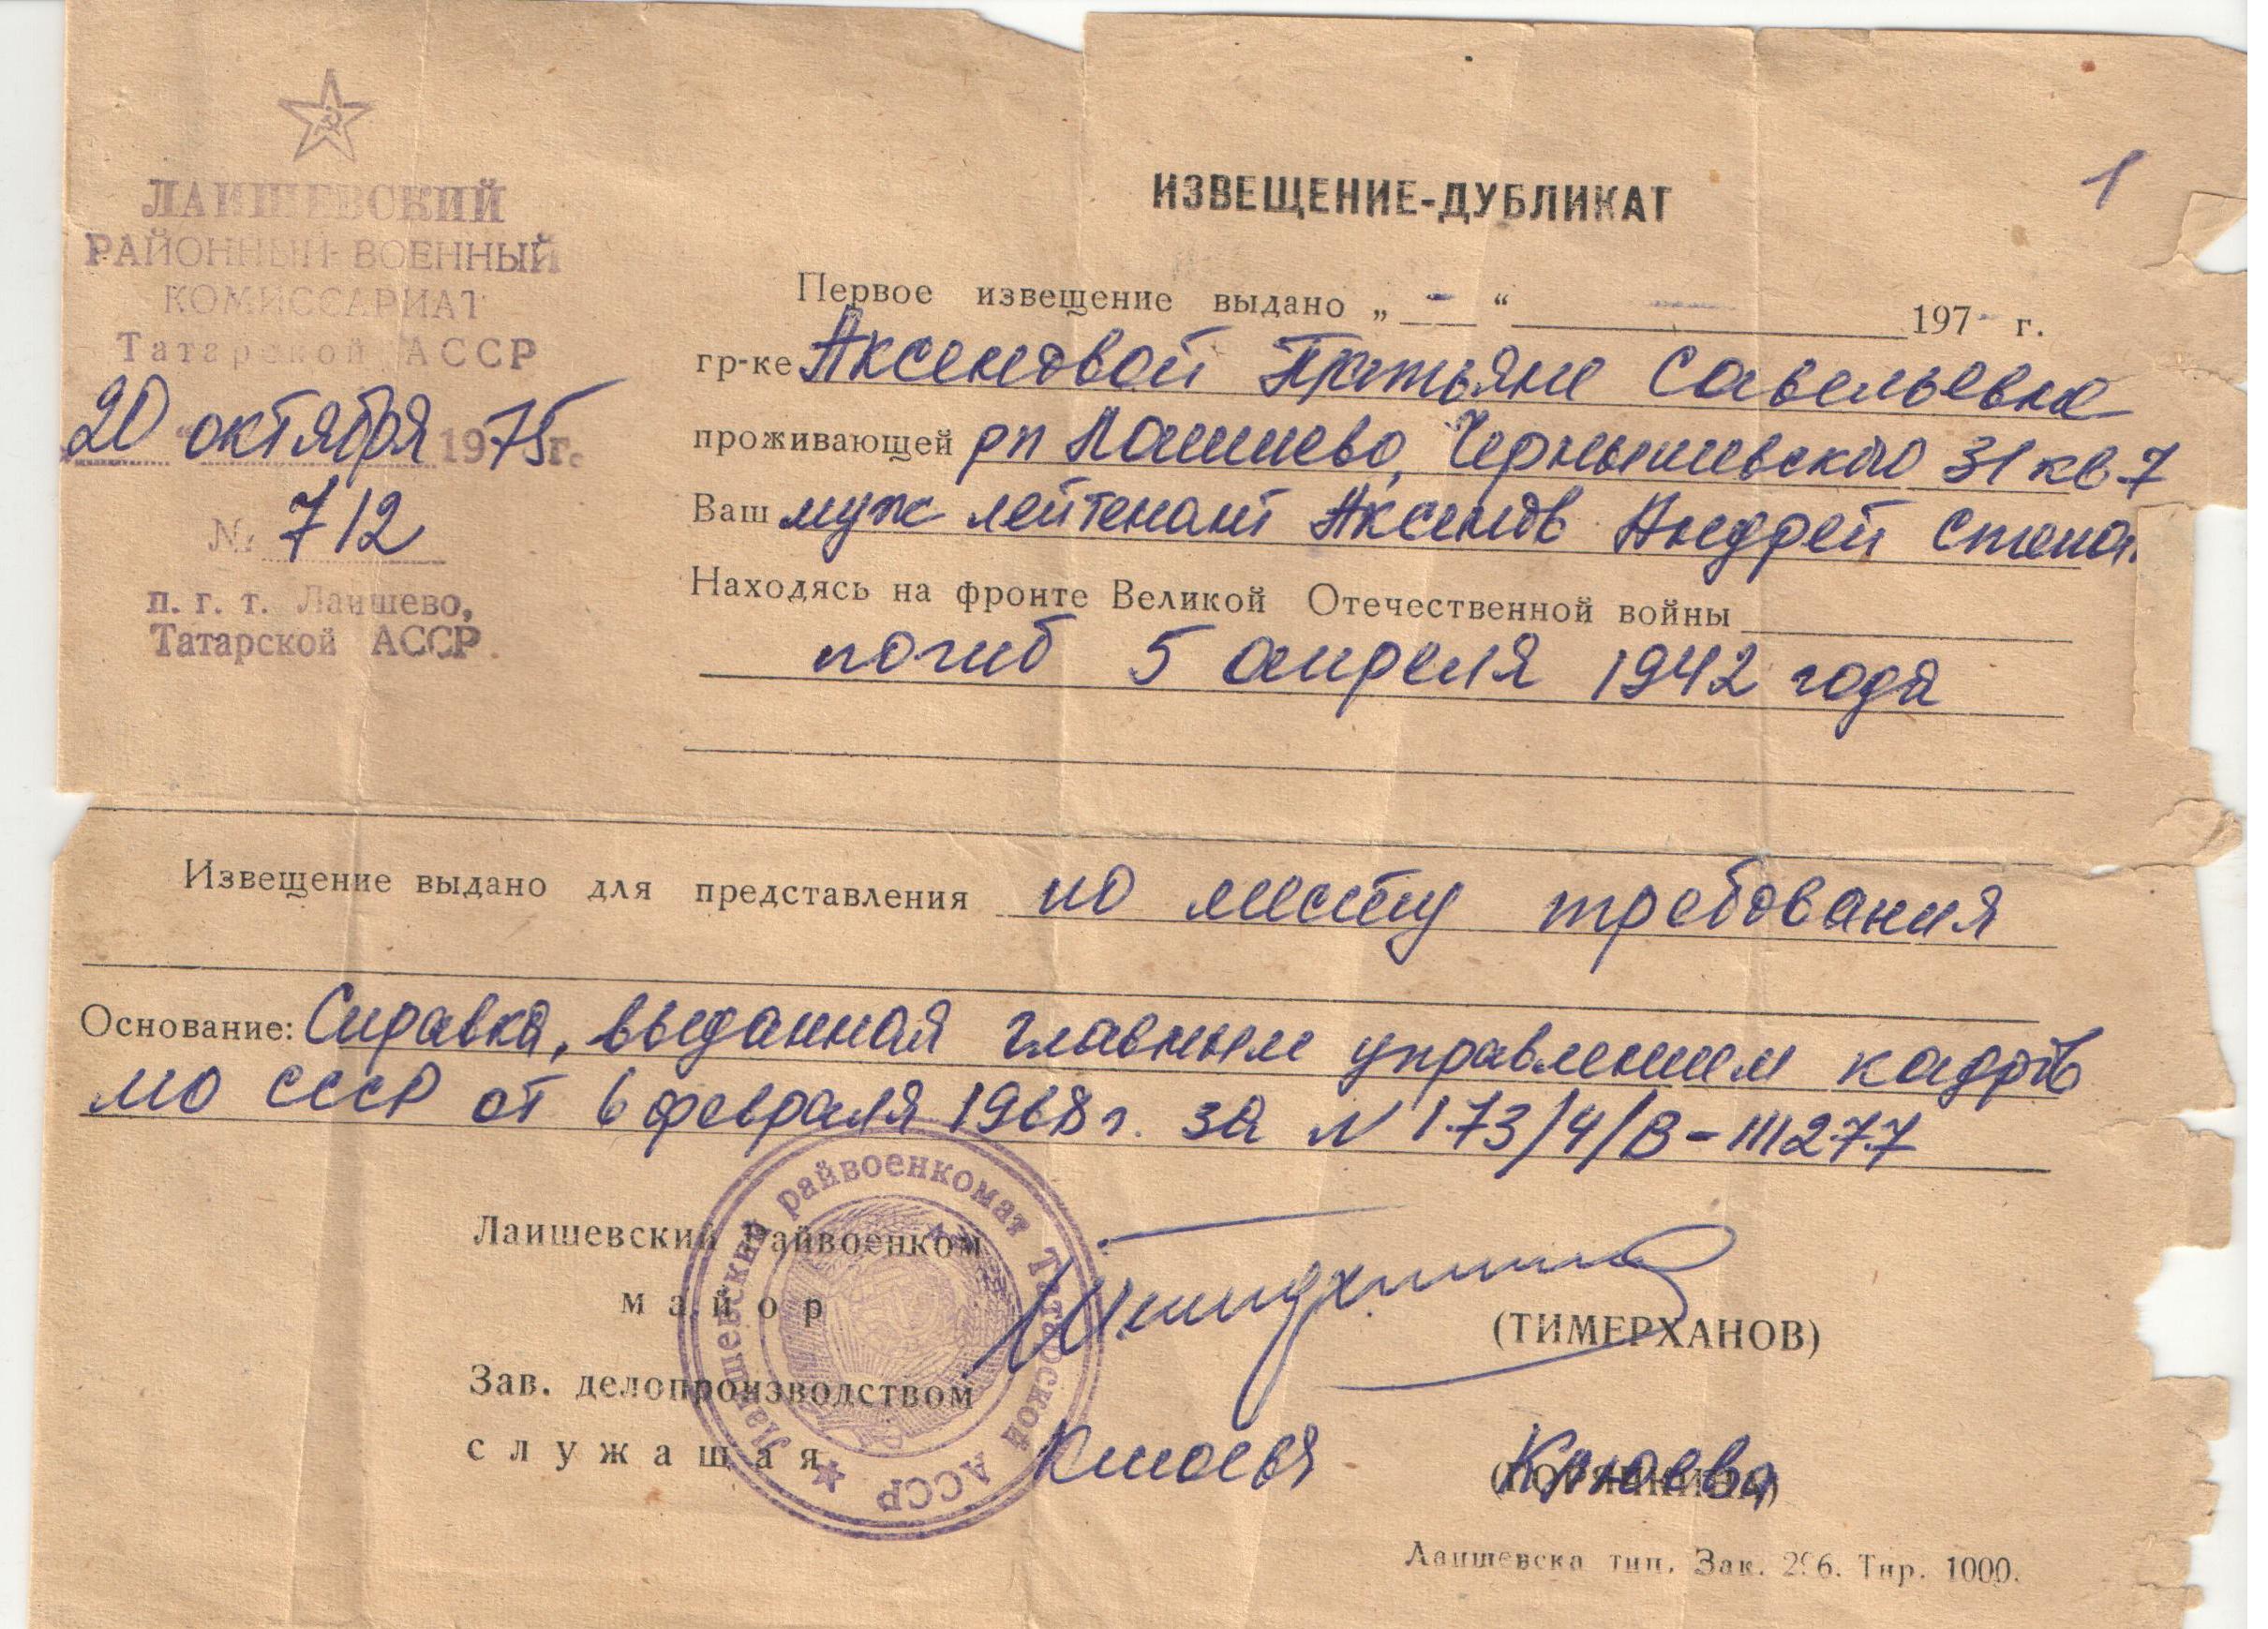 ЛАИШЕВСКИЙ
РАЙОННЫЙ ВОЕННЫЙ
КОМИССАРИАТ
Татарской АССР
20 октября 1975 г.
№ 712
п. г. т. Лаишево,
Татарской АССР.
1
ИЗВЕЩЕНИЕ-ДУБЛИКАТ
Первое извещение выдано „ - “ - 197- г.
гр-ке Аксеновой Татьяне Савельевна
проживающей рп Лаишево, Чернышевского 31 кв. 7
Ваш муж лейтенант Аксенов Андрей Степа.
Находясь на фронте Великой Отечественной войны
погиб 5 апреля 1942 года
Извещение выдано для представления по месту требования
Основание: Справка, выданная главным управлением кадров
МО СССР от 6 февраля 1968 г. за N 173/4/В-
Лаишевский Райвоенком
майор (ТИМЕРХАНОВ)
Зав. делопроизводством
служащая
Лаишевский райвоенкомат Татарской АССР
Лаишевска тип. Зак. 296. Тир. 1000.